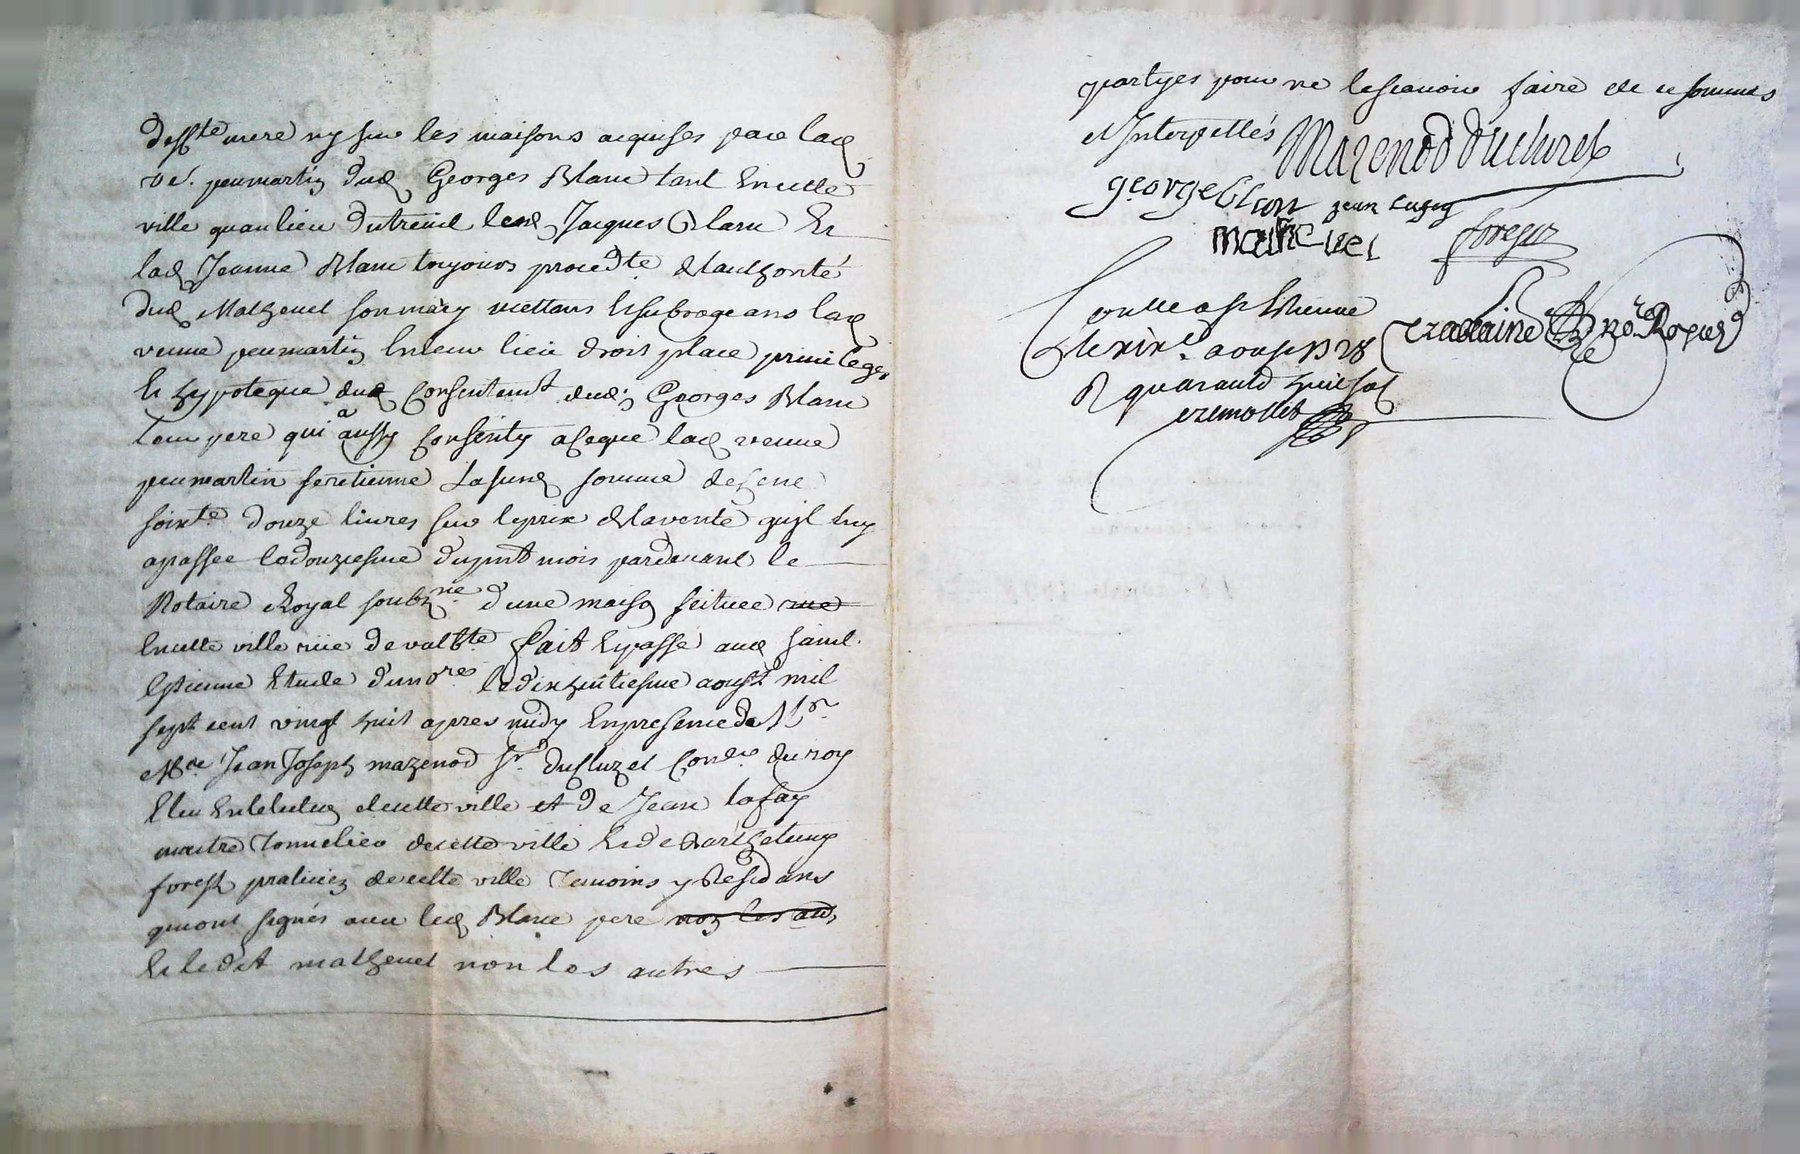 desd.te mere ny sur les maisons acquises par lad
ve. peumartin dud Georges Blanc tant en cette
ville quau lieu dutreuil led Jacques Blanc Et
lad Jeanne Blanc toujours proced.te de lauthorité
dud Mathevet son mary mettans et subrogeans lad
veuve peumartin en leur lieu droit place privilege
et hypoteque dud consentemt dud Georges Blanc
leur pere qui a aussy consenty a ceque lad veuve
peumartin se retienne lasusd somme de cent
soixte douze livres sur leprix de lavente quil luy
apassée ledouziesme dupnt mois pardevant le
Notaire Royal soubzne d'une maison scituée rue
en cette ville rüe de valbte fait et passé aud saint
Estienne Etude dunore ledixhuitiesme aoust mil
sept cent vingt huit apres midy en presence de Mr
Me Jean Joseph mazenod Sr. ducluzel Coner du roy
Elu en lelection de cette ville et de Jean lafay
maitre tonnelier de cette ville et de Barthelemy
forest praticien de cette ville temoins y Residans
quiont signés avec led Blanc pere non les au
Et ledit mathevet non les autres
partyes pour ne lescavoir faire de ce sommés
et Interpellés Mazenod ducluzel
george blan jean lafay
mathevet forest
Controllé a st Etienne
le xixe. aoust 1728
R quarante huit sols